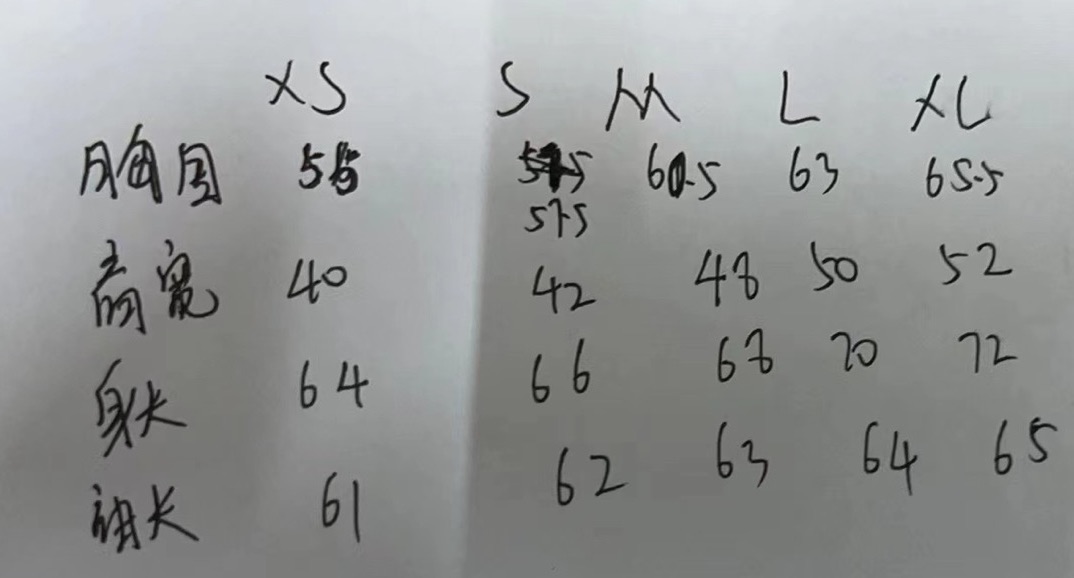 XS S M L XL
胸围 55 57.5 60.5 63 65.5
57.5
肩宽 40 42 48 50 52
身长 64 66 68 70 72
袖长 61 62 63 64 65